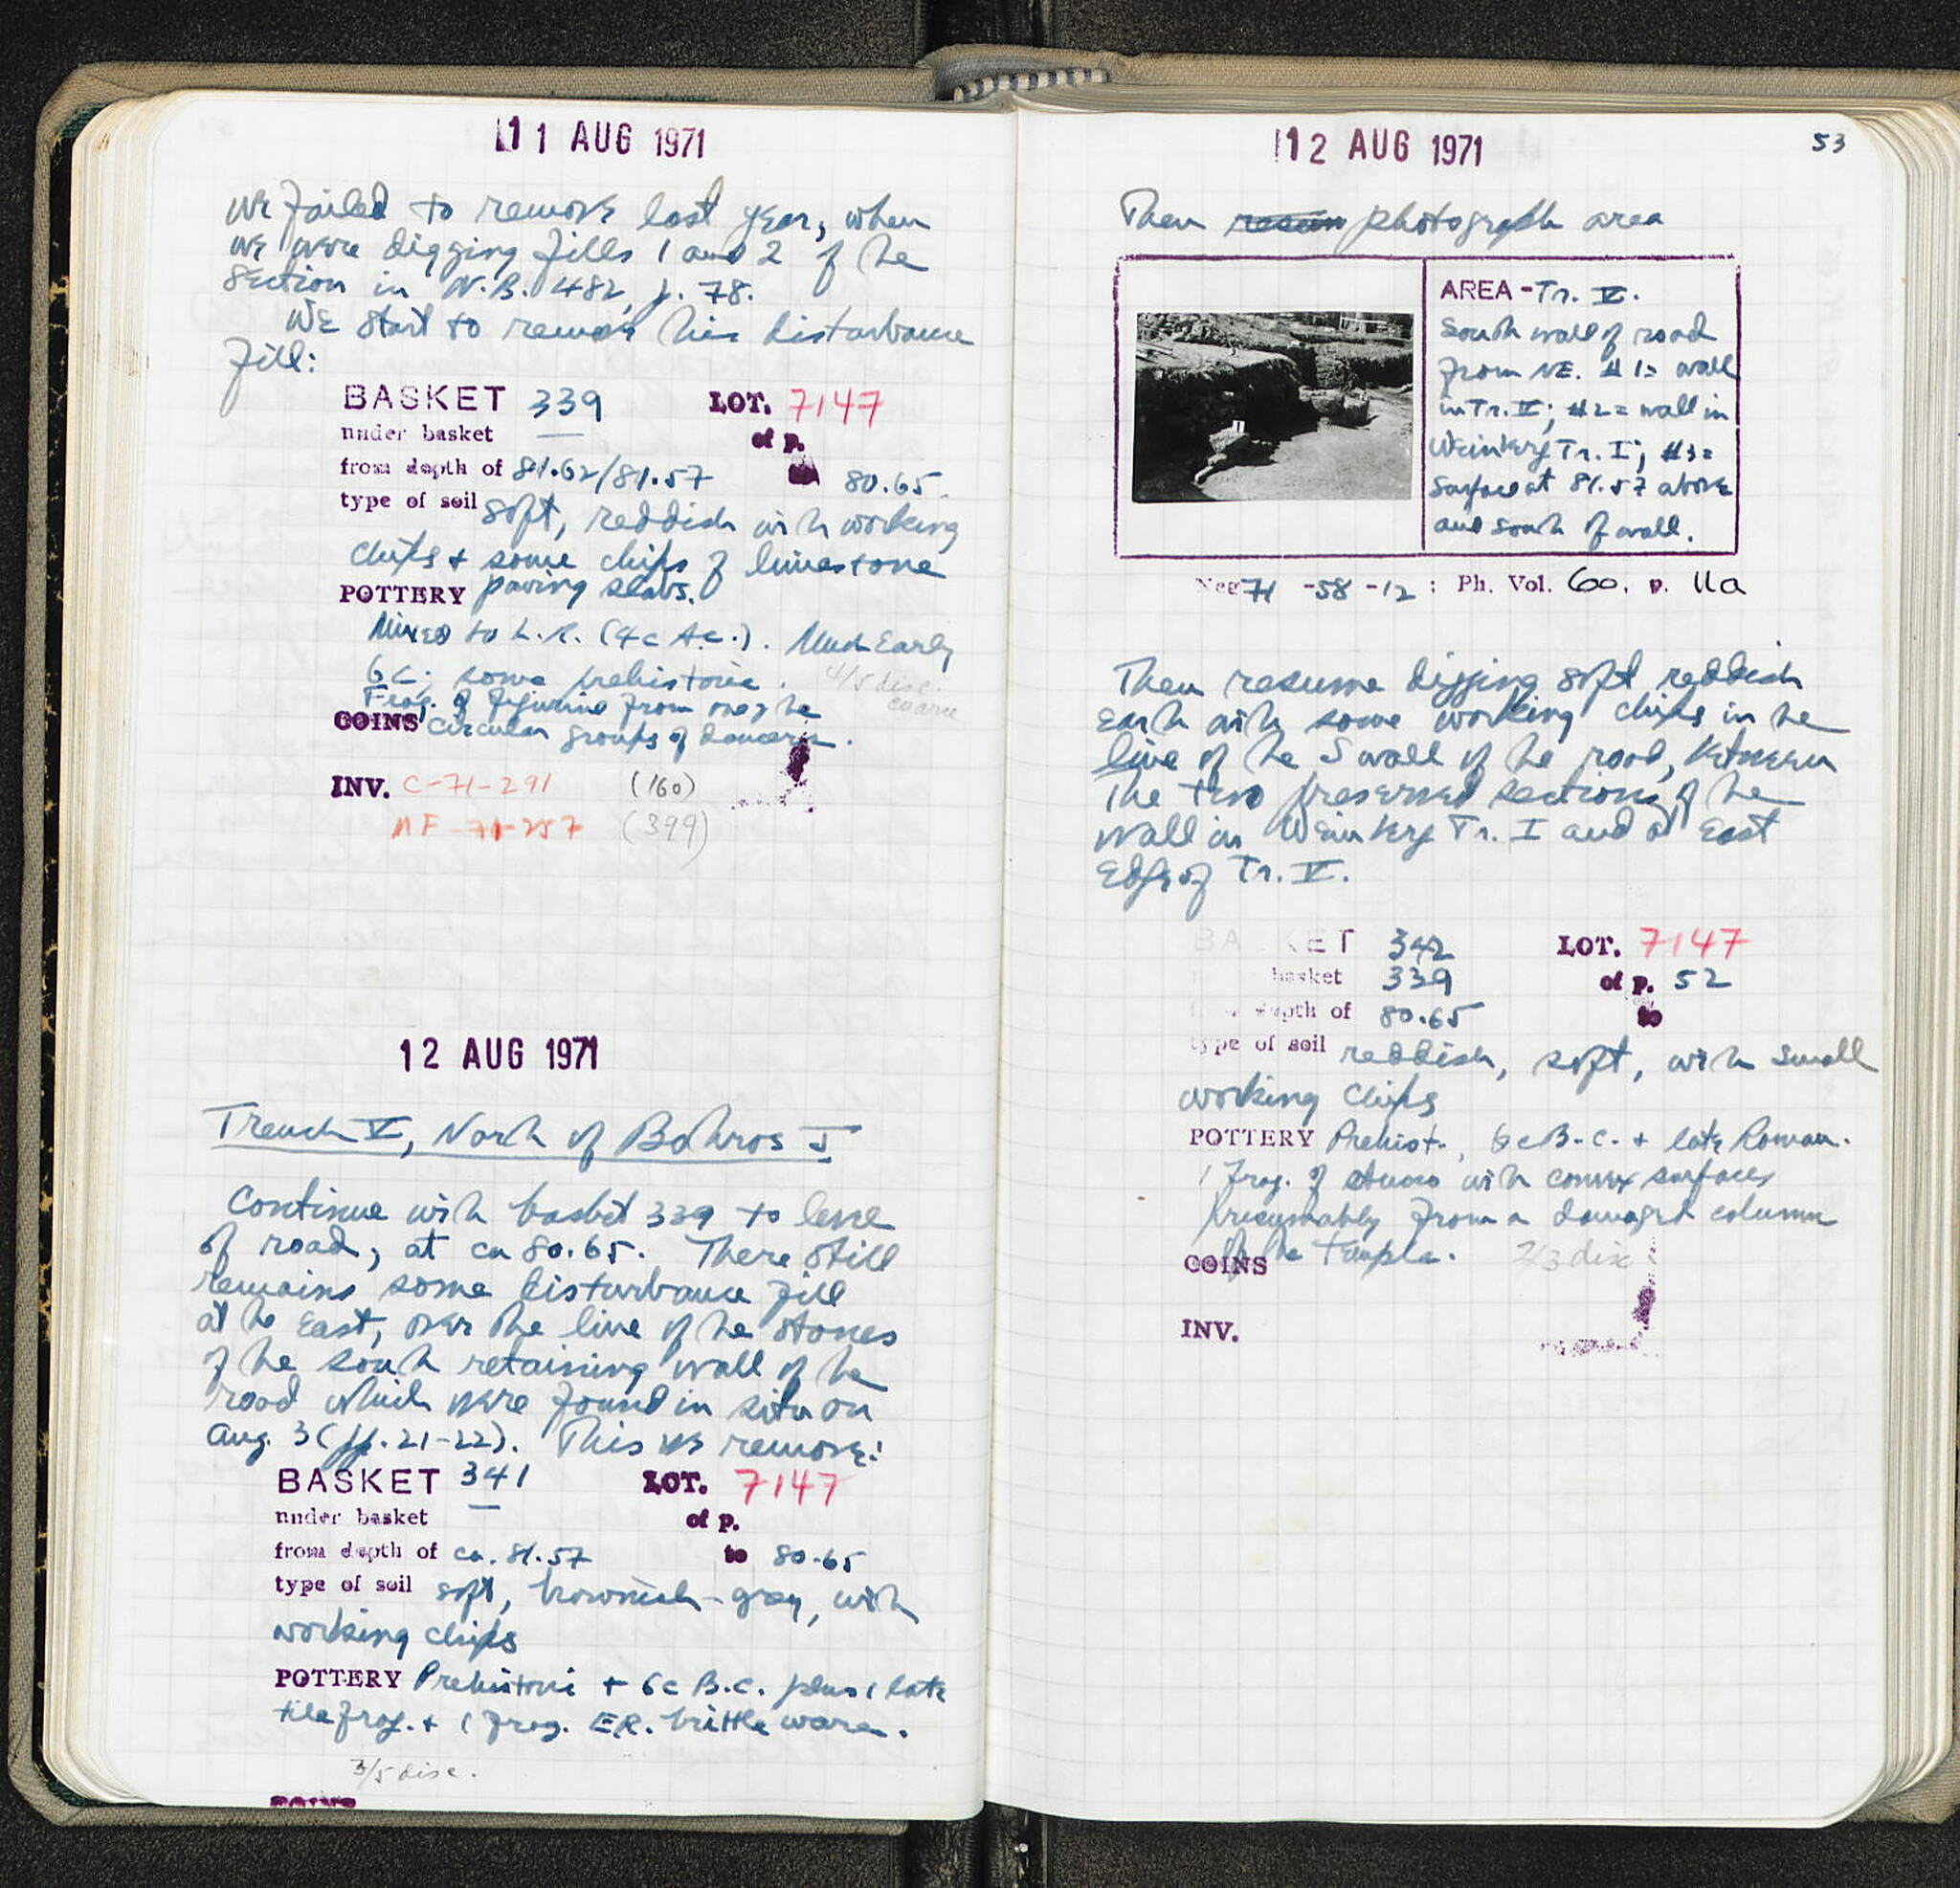 11 AUG 1971
we failed to remove last year, when
we were digging fills 1 and 2 of the
section in N.B. 482, p. 78.
We start to remove this disturbance
fill:
BASKET 339 LOT. 7147
under basket — of p.
from depth of 81.62/81.57 80.65
type of soil soft, reddish with working
chips + some chips of limestone
paving slabs.
POTTERY
Mixed to L.R. (4c A.C.). Much Early
6 C; some prehistoric. 4/5 disc.
coarse
Frag. of figurine from one of the
circular groups of dancers.
COINS
INV. C-71-291 (160)
MF-71-257 (399)
12 AUG 1971
Trench V, North of Bothros I
Continue with basket 339 to level
of road, at ca 80.65. There still
remains some disturbance fill
at the East, over the line of the stones
of the south retaining wall of the
road which were found in situ on
Aug. 3 (pp. 21-22). This we remove:
BASKET 341 LOT. 7147
under basket — of p.
from depth of ca. 81.57 to 80.65
type of soil soft, brownish-gray, with
working chips
POTTERY Prehistoric + 6c B.C. plus 1 late
tile frag. + 1 frag. E.R. brittle ware.
3/5 disc.
COINS
12 AUG 1971 53
Then photograph area
AREA - Tr. V.
South wall of road
from NE. #1= wall
in Tr. V; #2 = wall in
Weinberg Tr. I; #3=
surface at 81.57 above
and south of wall.
Neg 71 -58 -12 : Ph. Vol. 60. p. 11a
Then resume digging soft reddish
earth with some working chips in the
line of the S wall of the road, between
the two preserved sections of the
wall in Weinberg Tr. I and at East
Edge of Tr. V.
BASKET 342 LOT. 7147
basket 339 of p. 52
depth of 80.65 to
type of soil reddish, soft, with small
working chips
POTTERY Prehist., 6c B.C. + late Roman.
1 frag. of stucco with convex surfaces
presumably from a damaged column
of the Temple. 2/3 disc
COINS
INV.